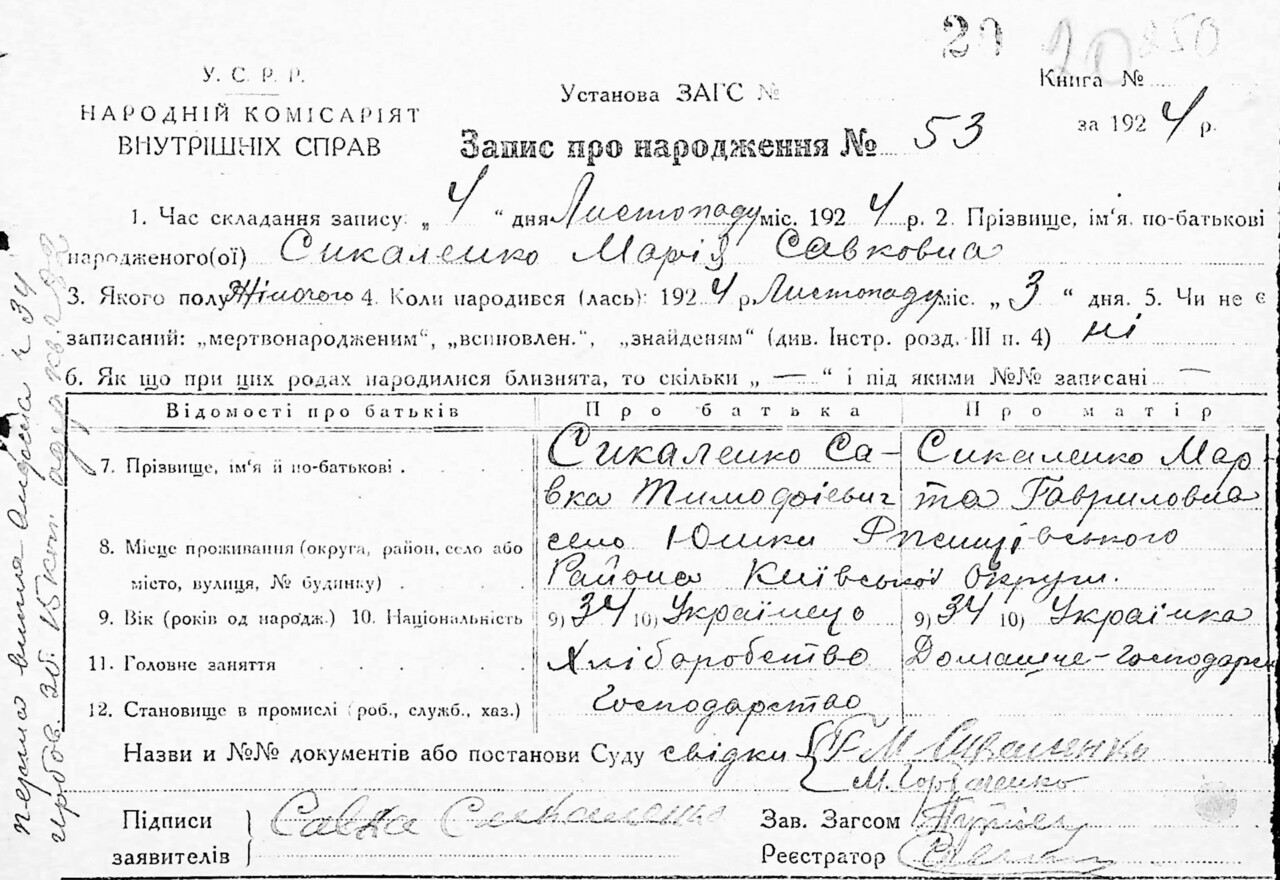 20 20 250
У. С. Р. Р.
НАРОДНІЙ КОМІСАРІЯТ
ВНУТРІШНІХ СПРАВ
Установа ЗАГС №
Книга №
за 1924 р.
Запис про народження № 53
1. Час складання запису: „ 4 “ дня Листопаду міс. 1924 р. 2. Прізвище, ім‘я, по-батькові
народженого(ої) Сикаленко Марія Савковна
3. Якого полу Жіночого 4. Коли народився (лась): 1924 р. Листопаду міс. „ 3 “ дня. 5. Чи не є
записаний: „мертвонародженим“, „всиновлен.“, „знайденям“ (див. Інстр. розд. III п. 4) ні
6. Як що при цих родах народилися близнята, то скільки „ — “ і під якими №№ записані —
Відомості про батьків Про батька Про матір
7. Прізвище, ім‘я й по-батькові . Сикаленко Са-
вка Тимофієвич
Сикаленко Мар-
та Гавриловна
8. Місце проживання (округа, район, село або
місто, вулиця, № будинку) .
село Юшки Ржищівського
Района Київської Округи.
9. Вік (років од народж.) 10. Національність 9) 34 10) Українець 9) 34 10) Українка
11. Головне заняття . . . . Хліборобство Домашнє-господарс
12. Становище в промислі (роб., служб., хаз.) Господарство
Назви и №№ документів або постанови Суду свідки
М. Горбаченко
Підписи
заявителів
Савка Сикаленко
Зав. Загсом
Реєстратор